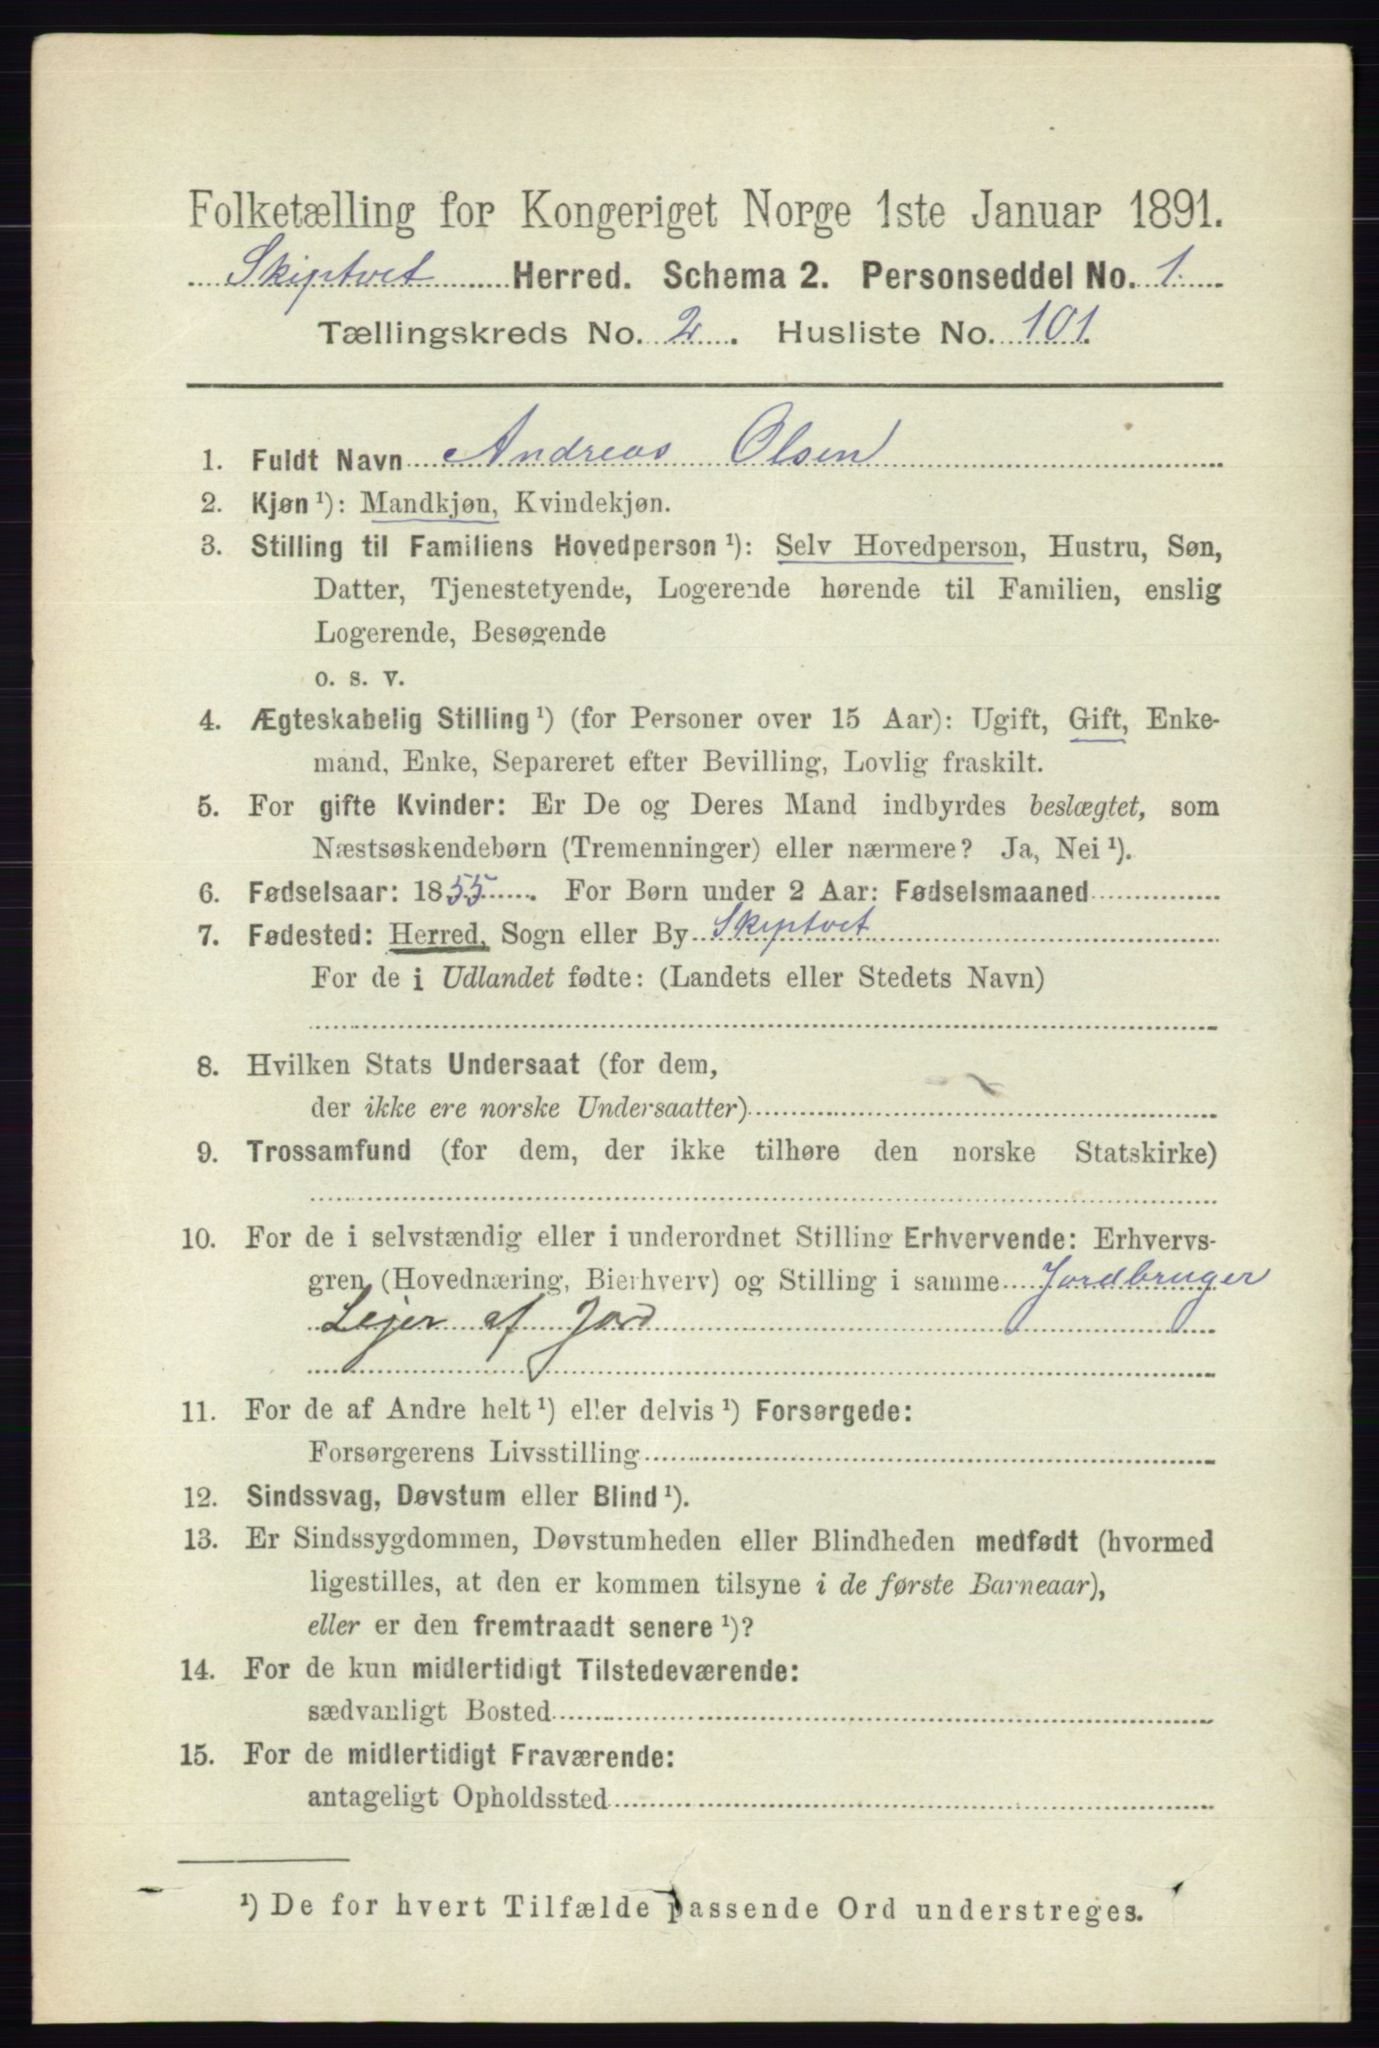 Folketælling for Kongeriget Norge 1ste Januar 1891.
Skiptvet Herred. Schema 2. Personseddel No. 1.
Tællingskreds No. 2. Husliste No. 101.
1. Fuldt Navn Andreas Olsen
2. Kjøn ¹): Mandkjøn, Kvindekjøn.
3. Stilling til Familiens Hovedperson ¹): Selv Hovedperson, Hustru, Søn,
Datter, Tjenestetyende, Logerende hørende til Familien, enslig
Logerende, Besøgende
o. s. v.
4. Ægteskabelig Stilling ¹) (for Personer over 15 Aar): Ugift, Gift, Enke-
mand, Enke, Separeret efter Bevilling, Lovlig fraskilt.
5. For gifte Kvinder: Er De og Deres Mand indbyrdes beslægtet, som
Næstsøskendebørn (Tremenninger) eller nærmere? Ja, Nei ¹).
6. Fødselsaar: 1855. For Børn under 2 Aar: Fødselsmaaned
7. Fødested: Herred, Sogn eller By Skiptvet
For de i Udlandet fødte: (Landets eller Stedets Navn)
8. Hvilken Stats Undersaat (for dem,
der ikke ere norske Undersaatter)
9. Trossamfund (for dem, der ikke tilhøre den norske Statskirke)
10. For de i selvstændig eller i underordnet Stilling Erhvervende: Erhvervs-
gren (Hovednæring, Bierhverv) og Stilling i samme Jordbruger
Lejer af Jord
11. For de af Andre helt ¹) eller delvis ¹) Forsørgede:
Forsørgerens Livsstilling
12. Sindssvag, Døvstum eller Blind ¹).
13. Er Sindssygdommen, Døvstumheden eller Blindheden medfødt (hvormed
ligestilles, at den er kommen tilsyne i de første Barneaar),
eller er den fremtraadt senere ¹)?
14. For de kun midlertidigt Tilstedeværende:
sædvanligt Bosted
15. For de midlertidigt Fraværende:
antageligt Opholdssted
¹) De for hvert Tilfælde passende Ord understreges.